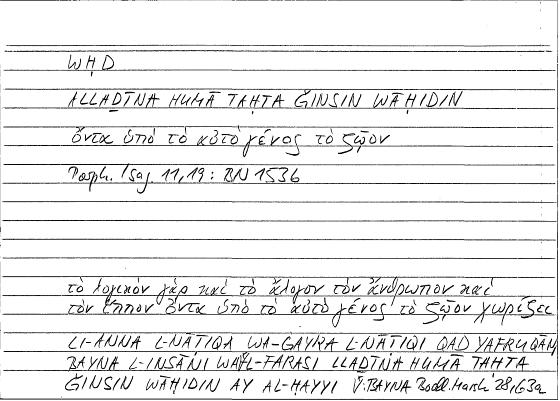 WḤD
ALLAḎĪNA HUMĀ TAḤTA ǦINSIN WĀḤIDIN
ὄντα ὑπὸ τὸ αὐτὸ γένος τὸ ζῷον
Porph. Isag. 11,19: BN 1536
τὸ λογικὸν γὰρ καὶ τὸ ἄλογον τὸν ἄνθρωπον καὶ
τὸν ἵππον ὄντα ὑπὸ τὸ αὐτὸ γένος τὸ ζῷον χωρίζει
LI-ANNA L-NĀṬIQA WA-ĠAYRA L-NĀṬIQI QAD YAFRUQĀNI
BAYNA L-INSĀNI WA-L-FARASI LLAḎĪNA HUMĀ TAḤTA
ǦINSIN WĀḤIDIN AY AL-ḤAYYI V. BAYNA Bodl. Marsh 28,63a